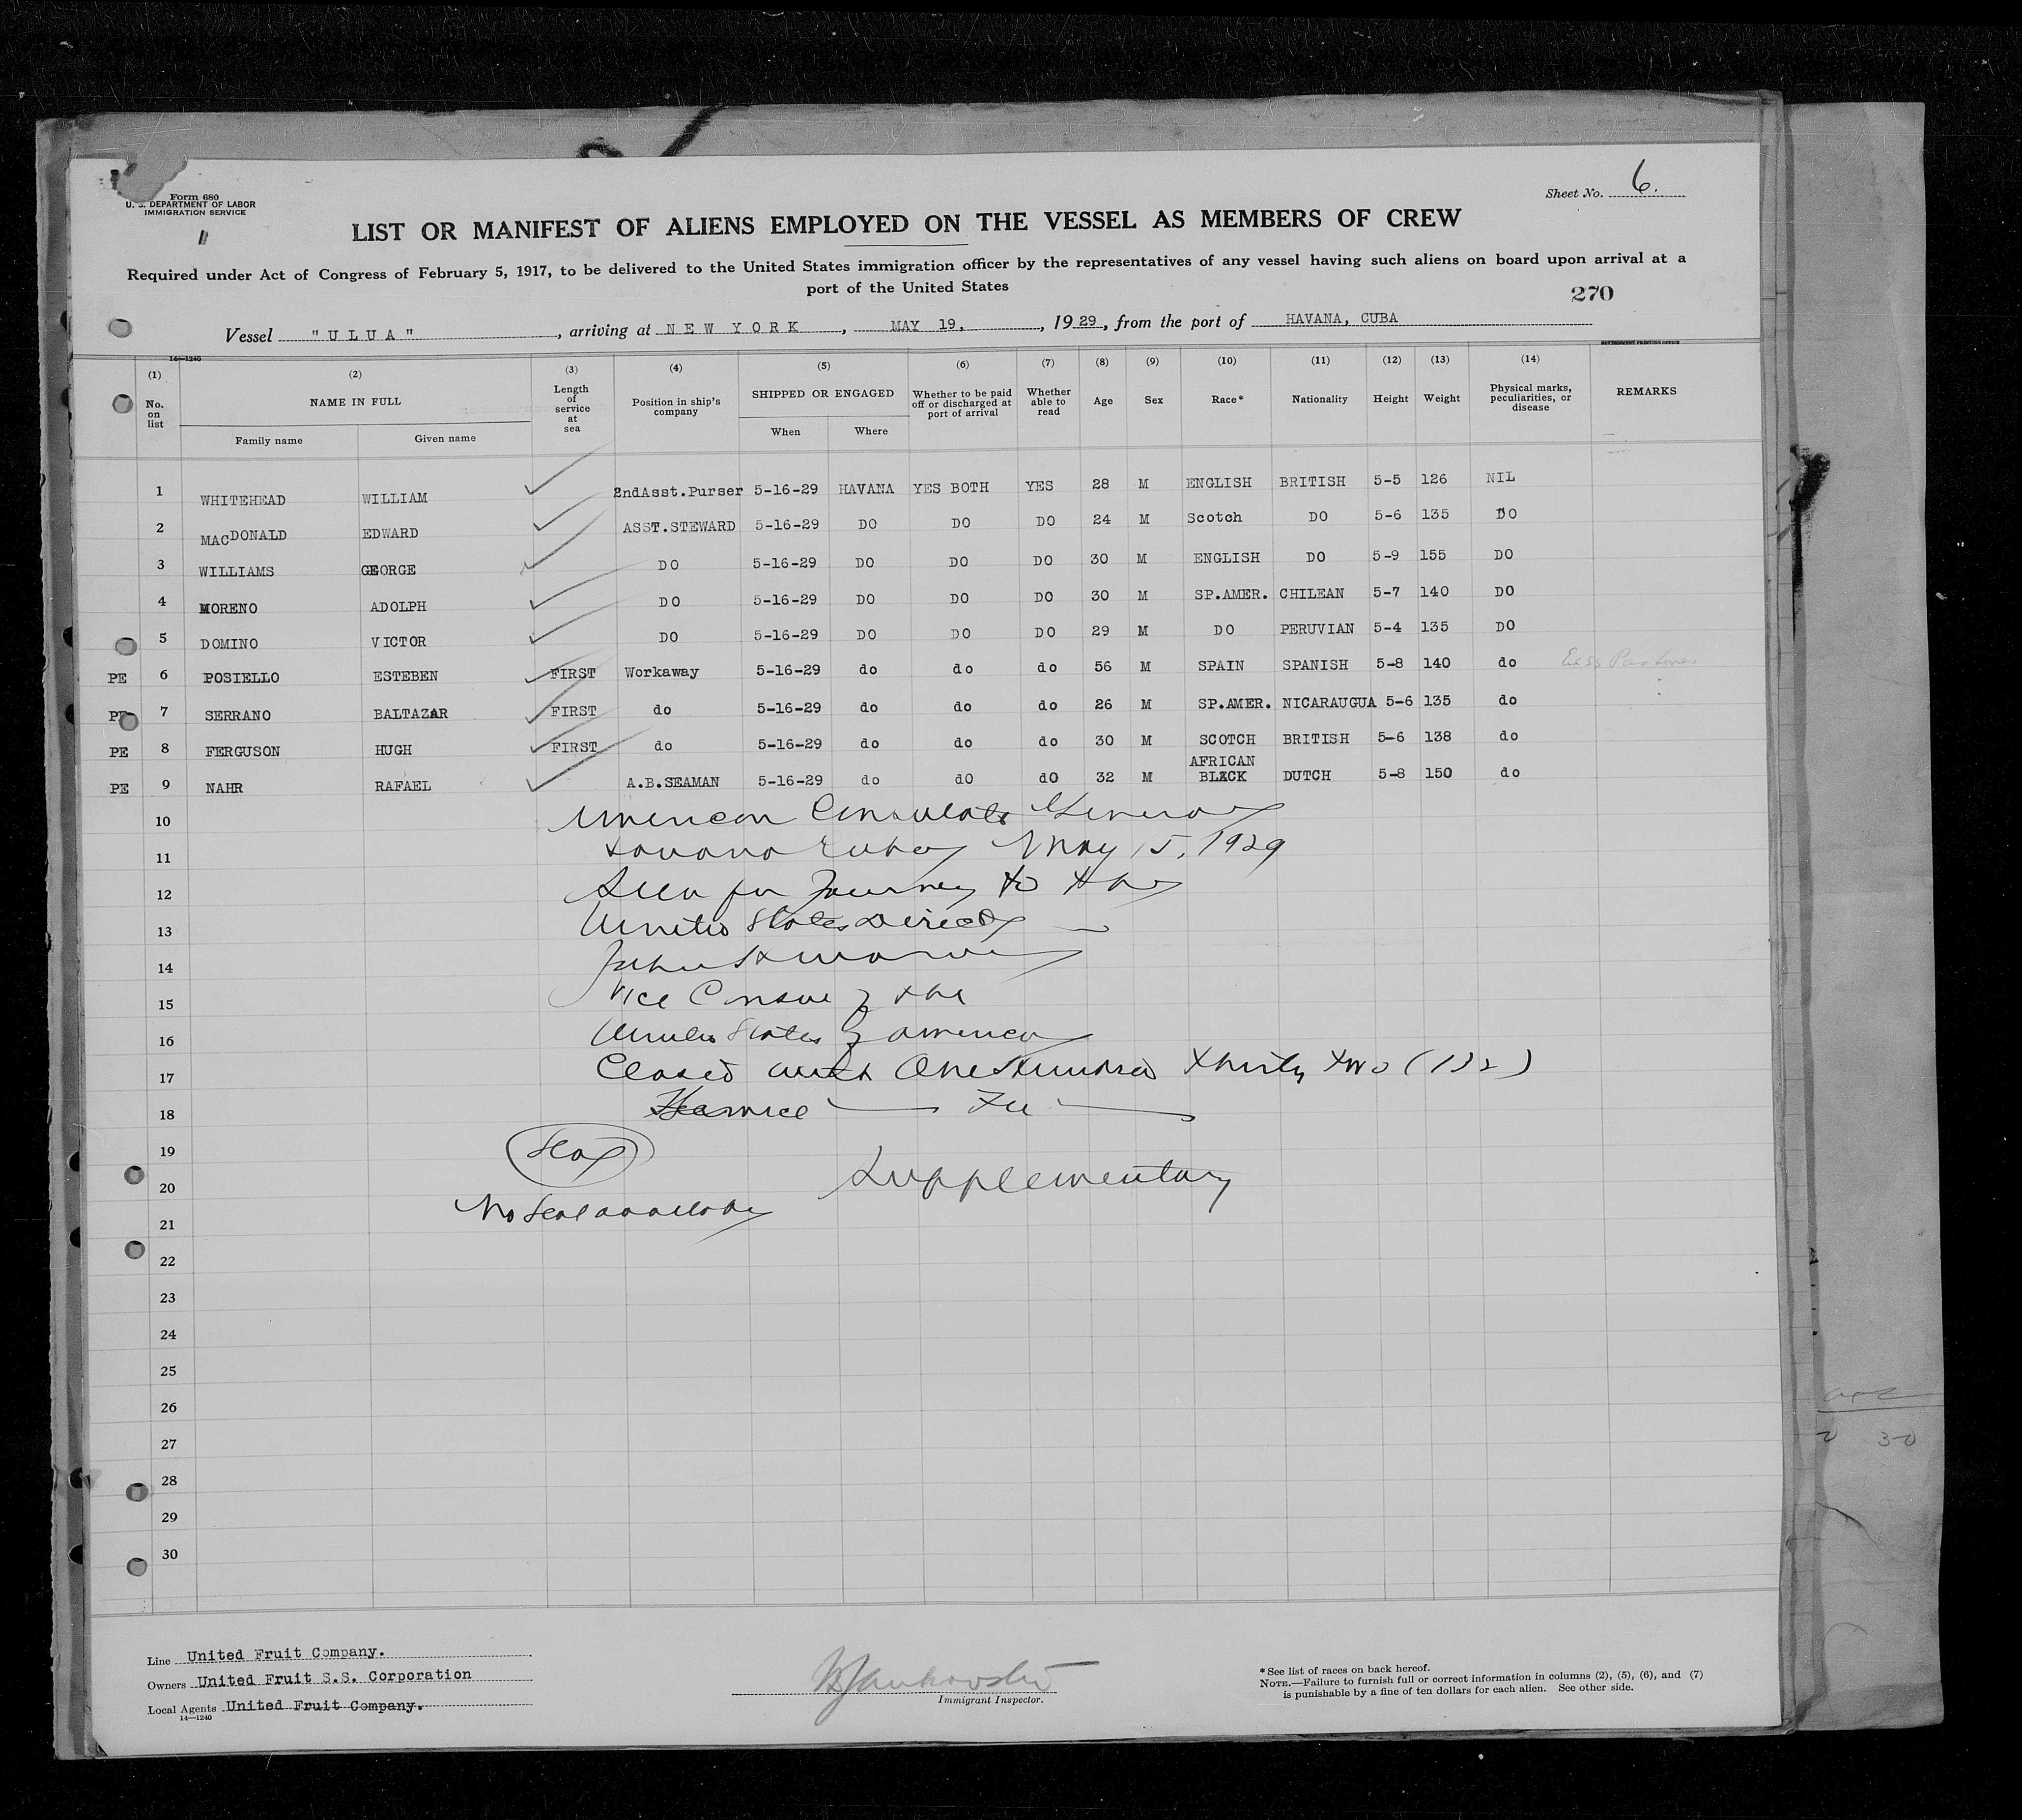 Form 680
U. S. DEPARTMENT OF LABOR
IMMIGRATION SERVICE
Sheet No. 6.
LIST OR MANIFEST OF ALIENS EMPLOYED ON THE VESSEL AS MEMBERS OF CREW
Required under Act of Congress of February 5, 1917, to be delivered to the United States immigration officer by the representatives of any vessel having such aliens on board upon arrival at a
port of the United States
270
Vessel "ULUA", arriving at NEW YORK, MAY 19, 1929, from the port of HAVANA, CUBA
14—1240
GOVERNMENT PRINTING OFFICE
(1) (2) (3) (4) (5) (6) (7) (8) (9) (10) (11) (12) (13) (14)
No. on list NAME IN FULL Length of service at sea Position in ship's company SHIPPED OR ENGAGED Whether to be paid off or discharged at port of arrival Whether able to read Age Sex Race* Nationality Height Weight Physical marks, peculiarities, or disease REMARKS
Family name Given name When Where
1 WHITEHEAD WILLIAM 2ndAsst.Purser 5-16-29 HAVANA YES BOTH YES 28 M ENGLISH BRITISH 5-5 126 NIL
2 MACDONALD EDWARD ASST.STEWARD 5-16-29 DO DO DO 24 M Scotch DO 5-6 135 DO
3 WILLIAMS GEORGE DO 5-16-29 DO DO DO 30 M ENGLISH DO 5-9 155 DO
4 MORENO ADOLPH DO 5-16-29 DO DO DO 30 M SP.AMER. CHILEAN 5-7 140 DO
5 DOMINO VICTOR DO 5-16-29 DO DO DO 29 M DO PERUVIAN 5-4 135 DO
PE 6 POSIELLO ESTEBEN FIRST Workaway 5-16-29 do do do 56 M SPAIN SPANISH 5-8 140 do
PE 7 SERRANO BALTAZAR FIRST do 5-16-29 do do do 26 M SP.AMER. NICARAUGUA 5-6 135 do
PE 8 FERGUSON HUGH FIRST do 5-16-29 do do do 30 M SCOTCH BRITISH 5-6 138 do
PE 9 NAHR RAFAEL A.B.SEAMAN 5-16-29 do do do 32 M AFRICAN BLACK DUTCH 5-8 150 do
10 American Consulate General
11 Havana Cuba May 15, 1929
12 Seen for Journey to the
13 United States Direct
14 John
15 Vice Consul of the
16 United States of America
17 Closed with One Hundred thirty two (132)
18 Fee
19 Seal
20 Supplementary
21 No Seal available
22
23
24
25
26
27
28
29
30
Line United Fruit Company.
Owners United Fruit S.S. Corporation
Local Agents United Fruit Company.
14—1240
Immigrant Inspector.
*See list of races on back hereof.
NOTE.—Failure to furnish full or correct information in columns (2), (5), (6), and (7)
is punishable by a fine of ten dollars for each alien. See other side.